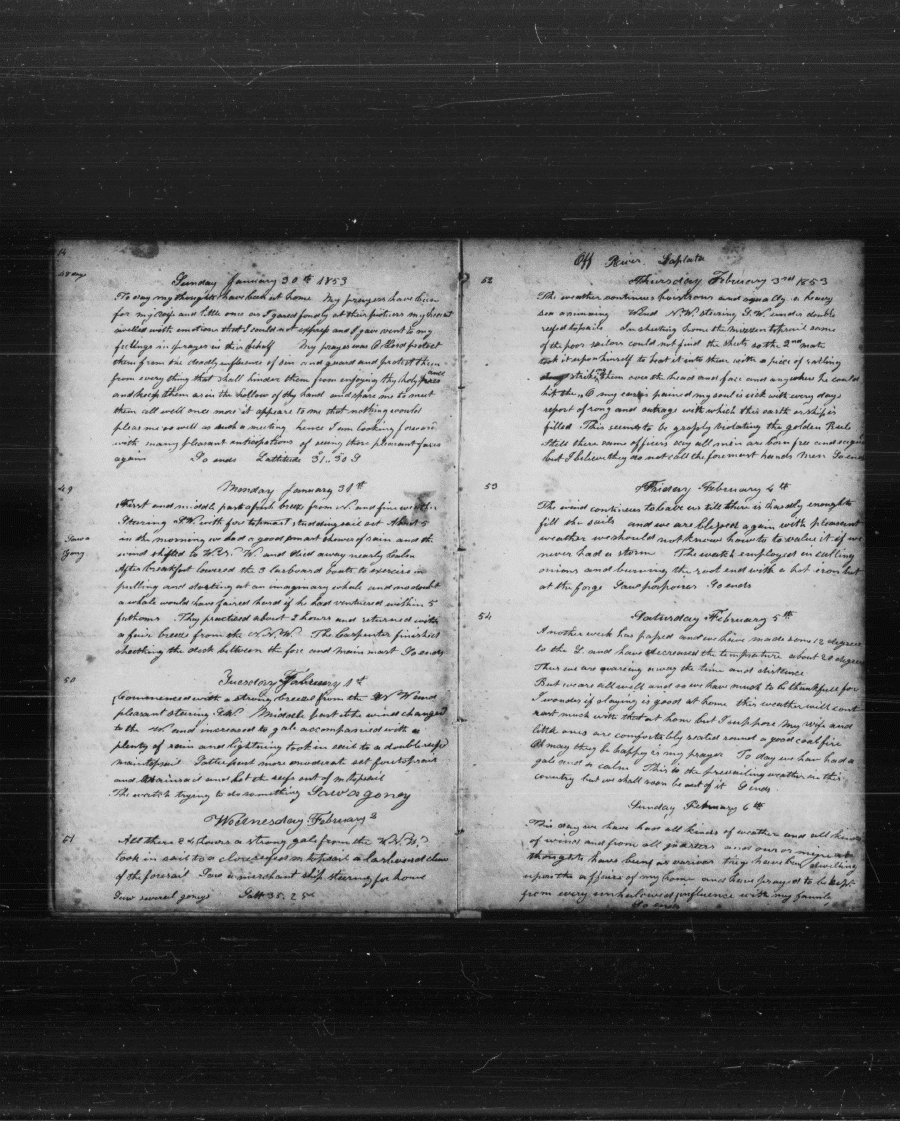 14
48 days
Sunday January 30th 1853
To day my thoughts have been at home My prayers have been
for my wife and little ones as I gazed fondly at their pictures my heart
swelled with emotions that I could not express and I gave vent to my
feelings in prayer in their behalf My prayer was O Lord protect
them from the deadly influence of sin and guard and protect them
from every thing that shall hinder them from enjoying thy holy presance
and keep them as in the hollow of thy hand and spare me to meet
them all well once more it appears to me that nothing would
please me so well as such a meeting hence I am looking forward
with many pleasant anticipations of seeing those pleasant faces
again So ends Lattitude 31..30 S
49
Monday January 31st
First and middle part a fresh breeze from N. and fine weather
Steering S.W. with fortopmast studding sail set About 5
in the morning we had a good smart shower of rain and the
Saw a
gony
wind shifted to W. W. and died away nearly calm
After breakfast lowered the 3 larboard boats to exercise in
pulling and darting at an imaginary whale and no doubt
a whale would have faired hard if he had ventured within 5
fathoms They practised about 2 hours and returned with
a fair breeze from the N.N.W. The Carpenter finished
sheathing the deck between the fore and main mast So ends
50
Tuesday February 1st
Commenced with a strong breeze from the N W and
pleasant steering S.W. Middle part the wind changed
to the W. and increased to gale accompanied with a
plenty of rain and lightning took in sail to a double reefd
maintopsail Latter part more moderate set foretopsail
and mainsail and let the reefs out of m topsail
The watch trying to do something Saw a goney
Wednesday February 2
51
All these 24 hours a strong gale from the W.N.W.
took in sail to a close reefed m topsail
of the foresail Saw a merchant ship steering for home
Saw several gonys Latt 35.. 25
Off River Laplata
52
Thursday February 3rd 1853
The weather continues boistrous and squally a heavy
sea a running Wind N.W. steering S.W. under double
reefed topsails In sheeting home the mizzen topsail some
of the poor sailors could not find the sheets so the 2nd mate
took it upon himself to beat it into them with a piece of ratling
striking them over the head and face and anywhere he could
hit them O my pained my soul is sick with every days
report of rong and outrage with which this earth or ship is
filled This seems to be grosply violating the golden Rule
Still these same officers say all men are born free and equal
but I believe they do not call the foremast hands men So ends
53
Friday February 4th
The wind continues to leave us till there is hardly enough to
fill the sails and we are blessed again with pleasant
weather we should not know how to to value it if we
never had a storm The watch employed in culling
onions and burning the root end with a hot iron
at the forge Saw porpoises So ends
54
Saturday February 5th
Another week has passed and we have made some 12 degrees
to the S. and have decreased the temperature about 20 degrees
Thus we are wearing away the time and distance
But we are all well and so we have much to be thankfull for
I wonder if slaying is good at home this weather will cont
rast much with that at home but I suppose my wife and
little ones are comfortably seated round a good coal fire
Oh may they be happy is my prayer To day we have had a
gale and a calm This is the prevailing weather in this
country but we shall soon be out of it So ends
Sunday February 6th
This day we have had all kinds of weather and all kinds
of winds and from all quarters and our or migreat
thoughts have been as various they have been dwelling
upon the affairs of my home and have prayed to be kept
from every unhalowed influence with my family
So ends